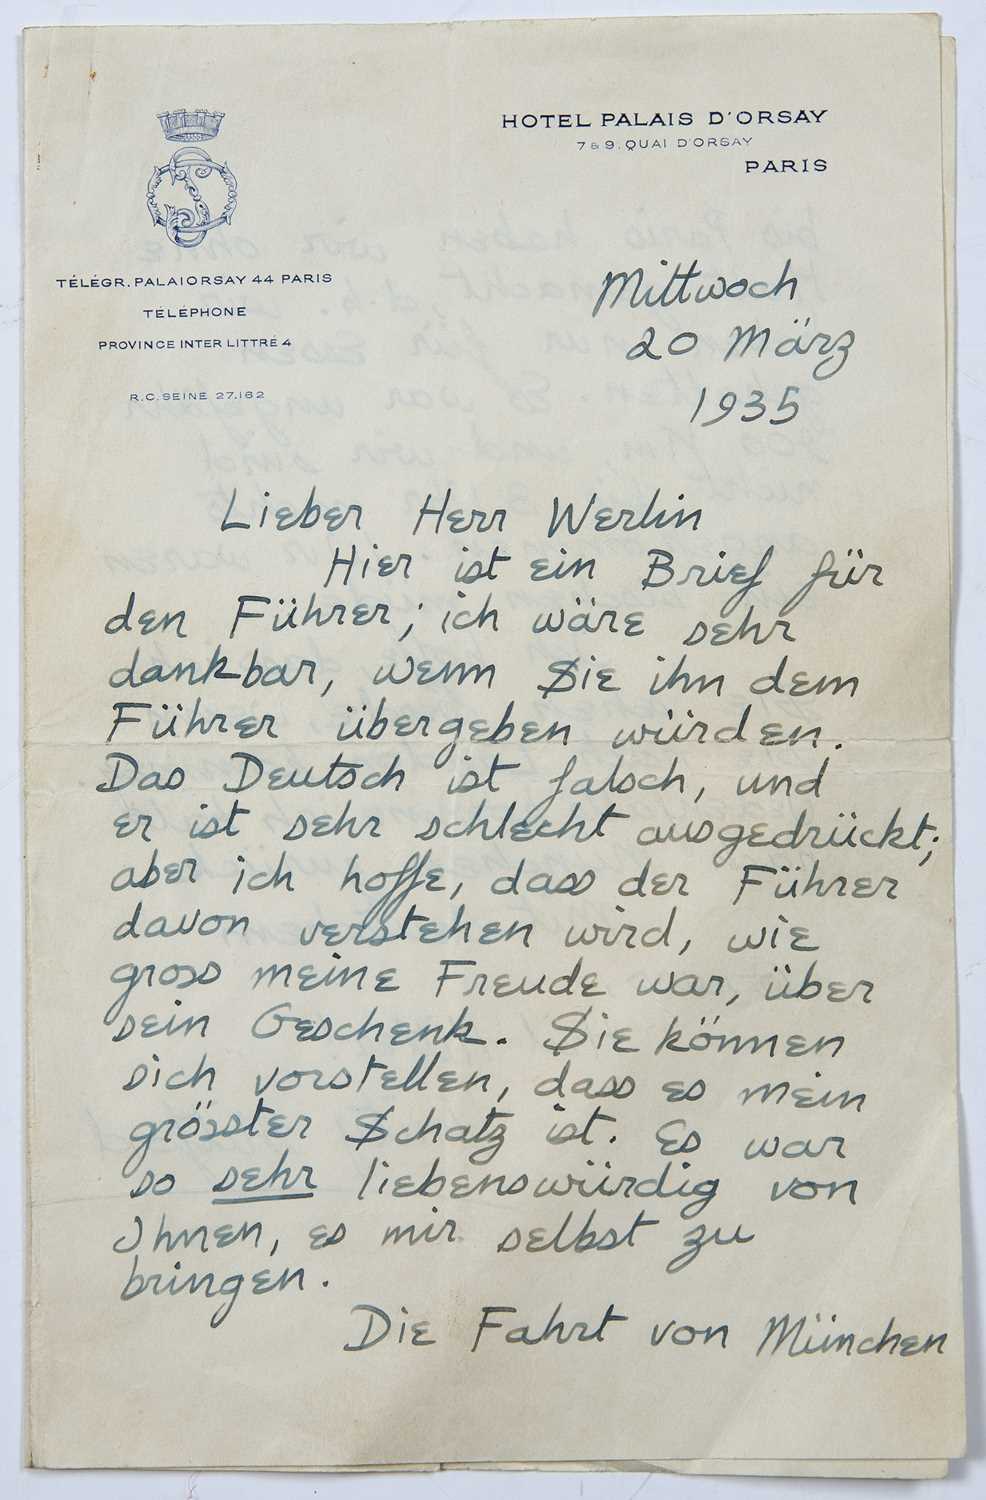 HOTEL PALAIS D'ORSAY
7 & 9. QUAI D'ORSAY
PARIS
TÉLÉGR. PALAIORSAY 44 PARIS
TÉLÉPHONE
PROVINCE INTER LITTRÉ 4
R.C. SEINE 27.162
Mittwoch
20 März
1935
Lieber Herr Werlin
Hier ist ein Brief für
den Führer; ich wäre sehr
dankbar, wenn Sie ihn dem
Führer übergeben würden.
Das Deutsch ist falsch, und
er ist sehr schlecht ausgedrückt;
aber ich hoffe, dass der Führer
davon verstehen wird, wie
gross meine Freude war, über
sein Geschenk. Sie können
sich vorstellen, dass es mein
grösster Schatz ist. Es war
so sehr liebenswürdig von
Ihnen, es mir selbst zu
bringen.
Die Fahrt von München